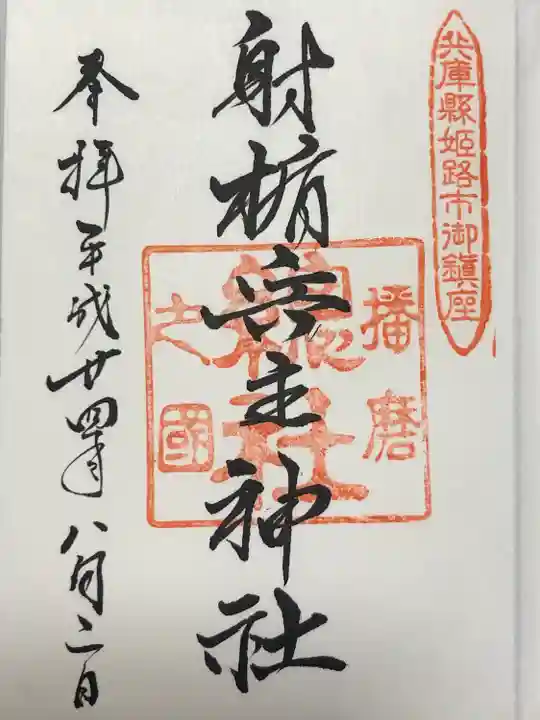 兵庫縣姫路市御鎮座
播磨
之國
總社
射楯兵主神社
奉拝平成廿四年八月二日